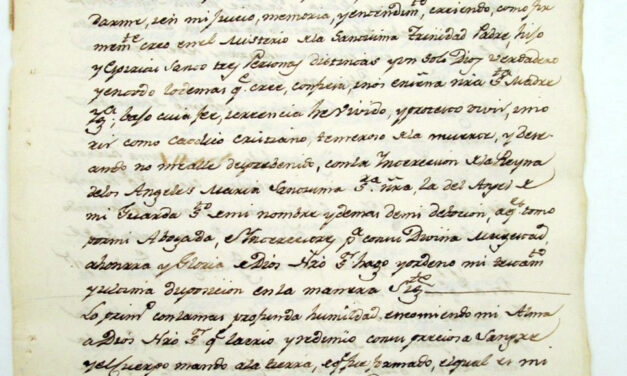 darme, en mi Juicio, memoria, y entendim.to, creiendo, como fir
mem.te creo en el Misterio de la Sanctisima Trinidad Padre, hijo
y Espiritu Sancto tres Personas distintas y un solo Dios Verdadero
y en todo lo demas q.e cree, confiesa, y nos enseña nra S.ta Madre
Yg.a, bajo cuia fee, y creencia he Vivido, y protexto vivir, y mo
rir como Catolico Cristiano, temeroso de la muerte, y dese
ando no me alle desprebenido, con la Intercecion de la Reyna
de los Angeles Maria Sanctisima S.ra nra, la del Angel de
mi Guarda S.to de mi nombre y demas de mi debocion, a q.s tomo
por mi Abogada, e Intercectores p.a con su Divina Magestad,
a honrra y Gloria de Dios Nro S.r hago y ordeno mi testam.to
y ultima disposicion en la manera Sig.te
Lo prim.o con la mas profunda humildad, encomiendo mi Alma
a Dios Nro S.r q.e la crio y redimio con su preciosa Sangre
y el Cuerpo mando a la tierra, de q.e fue formado, el qual es mi